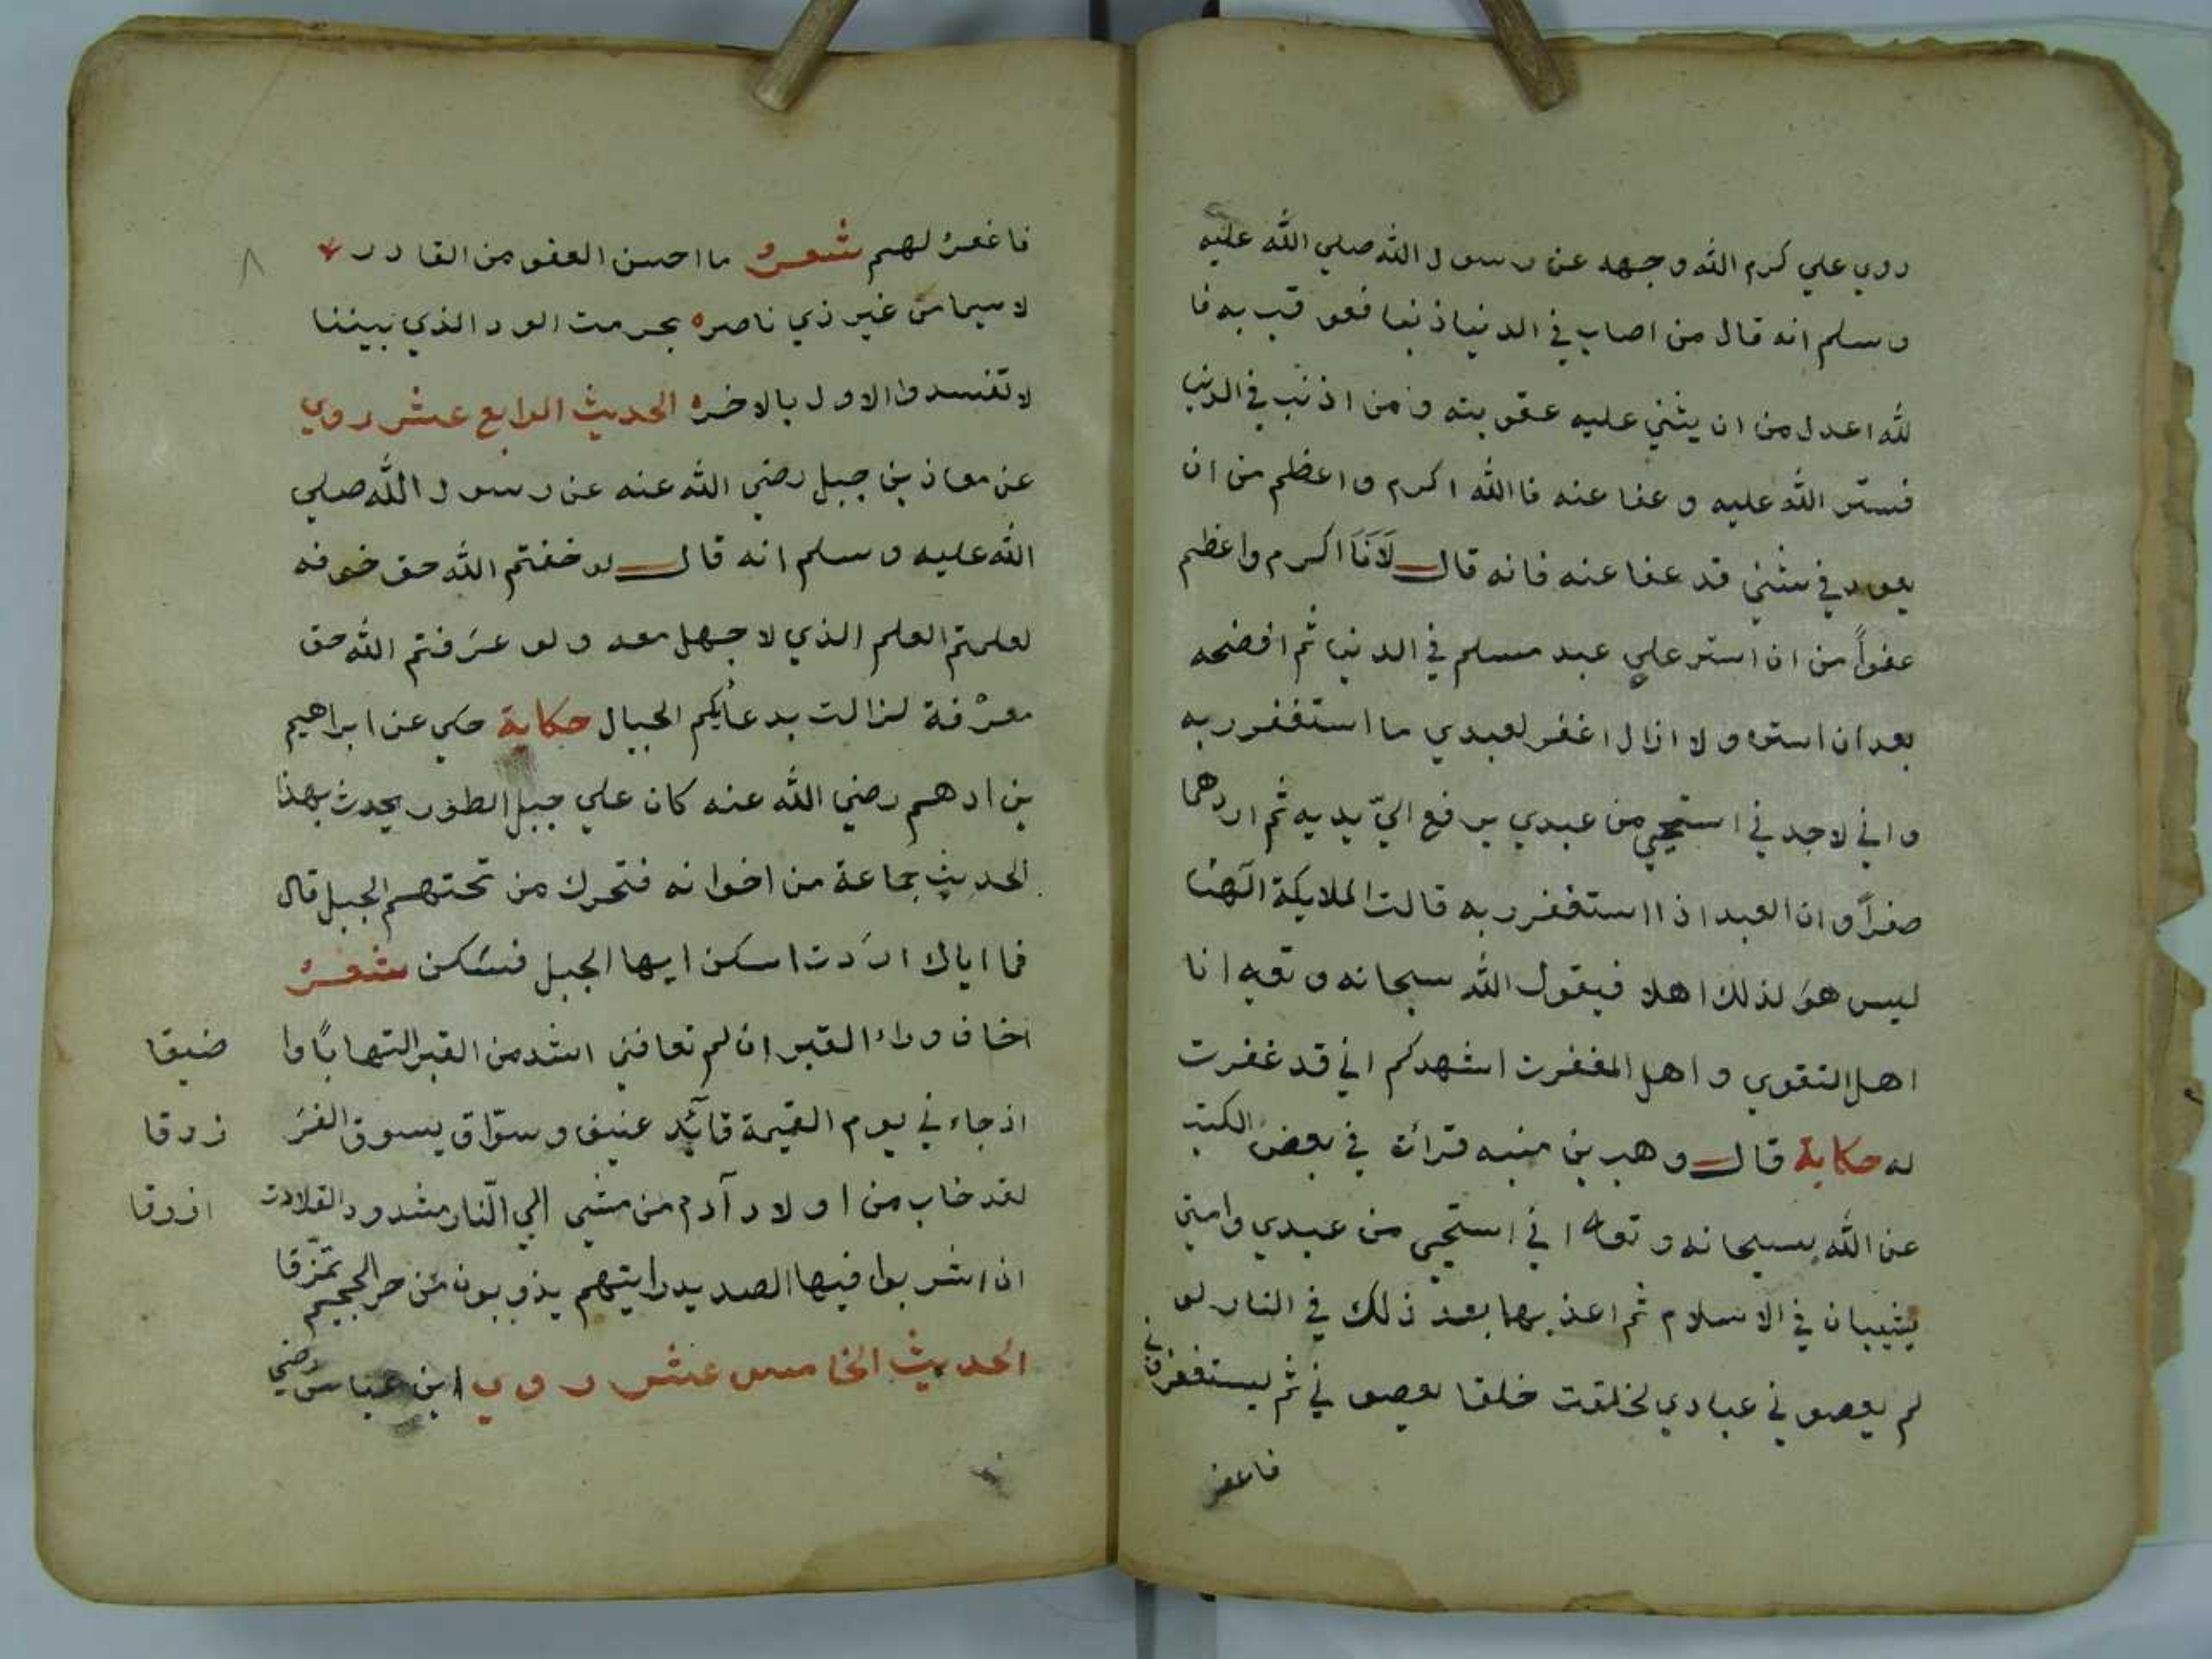 روي علي كرم الله وجهه عن رسول الله صلي الله عليه
وسلم انه قال من اصاب في الدنيا ذنبا فعوقب به فا
لله اعدل من ان يثني عليه عقوبته ومن اذنب في الدنيا
فستر الله عليه وعفا عنه فاالله اكرم واعظم من ان
يعود في شئي قد عفا عنه فانه قال لَاَنَا اكرم واعظم
عفواً من ان استر علي عبد مسلم في الدنيا ثم افضحه
بعد ان استره ولا ازال اغفر لعبدي ما استغفر ربه
واني لاجدني استحيي من عبدي يرفع اليّ يديه ثم اردهما
صفراً وان العبد اذا استغفر ربه قالت الملايكة الٓهنا
ليس هوَ لذلك اهلا فيقول الله سبحانه وتعه انا
اهل التقوي واهل المغفرت اشهدكم اني قد غفرت
له حكاية قال وهب بن منبه قرائت في بعض الكتب
عن الله سبحانه وتعا اني استحيي من عبدي وامتي
يشيبان في الاسلام ثم اعذبهما بعد ذلك في النار لو
لم يعصوني عبادي لخلقت خلقا يعصوني ثم ليستغفروني
فاغفر
٨
فاغفرُ لهم شعرٌ ما احسن العفو من القادر
لا سيما من غير ذي ناصره بحرمت الود الذي بيننا
لا تفسدوا الاول بالاخره الحديث الرابع عشر روي
عن معاذ بن جبل رضي الله عنه عن رسول الله صلي
الله عليه وسلم انه قال لو خفتم الله حق خوفه
لعلمتم العلم الذي لا جهل معه ولو عرَفتم الله حق
معرْفة لزالت بدعاُيكم الجبال حكاية حكي عن ابراهيم
بن ادهم رضي الله عنه كان علي جبل الطور يحدث بهذا
الحديث جماعة من اخوانه فتحرك من تحتهم الجبل قال
فما اياك ارَدت اسكن ايها الجبل فسَكن شعرٌ
اخاف وراء القبر ان لم تعافني اشد من القبر التهاباً وا ضيقا
اذ جاءني يوم القيمة قآيد عنيف وسوّاق يسوق الفرَ زدقا
لقد خاب من اولاد آدم من مشي الي النّار مشدود القلادت ازرقا
ان اشربوا فيها الصديد رايتهم يذوبون من حر الجحيم تمزّقا
الحديث الخامس عشر روي ابن عباس رضي